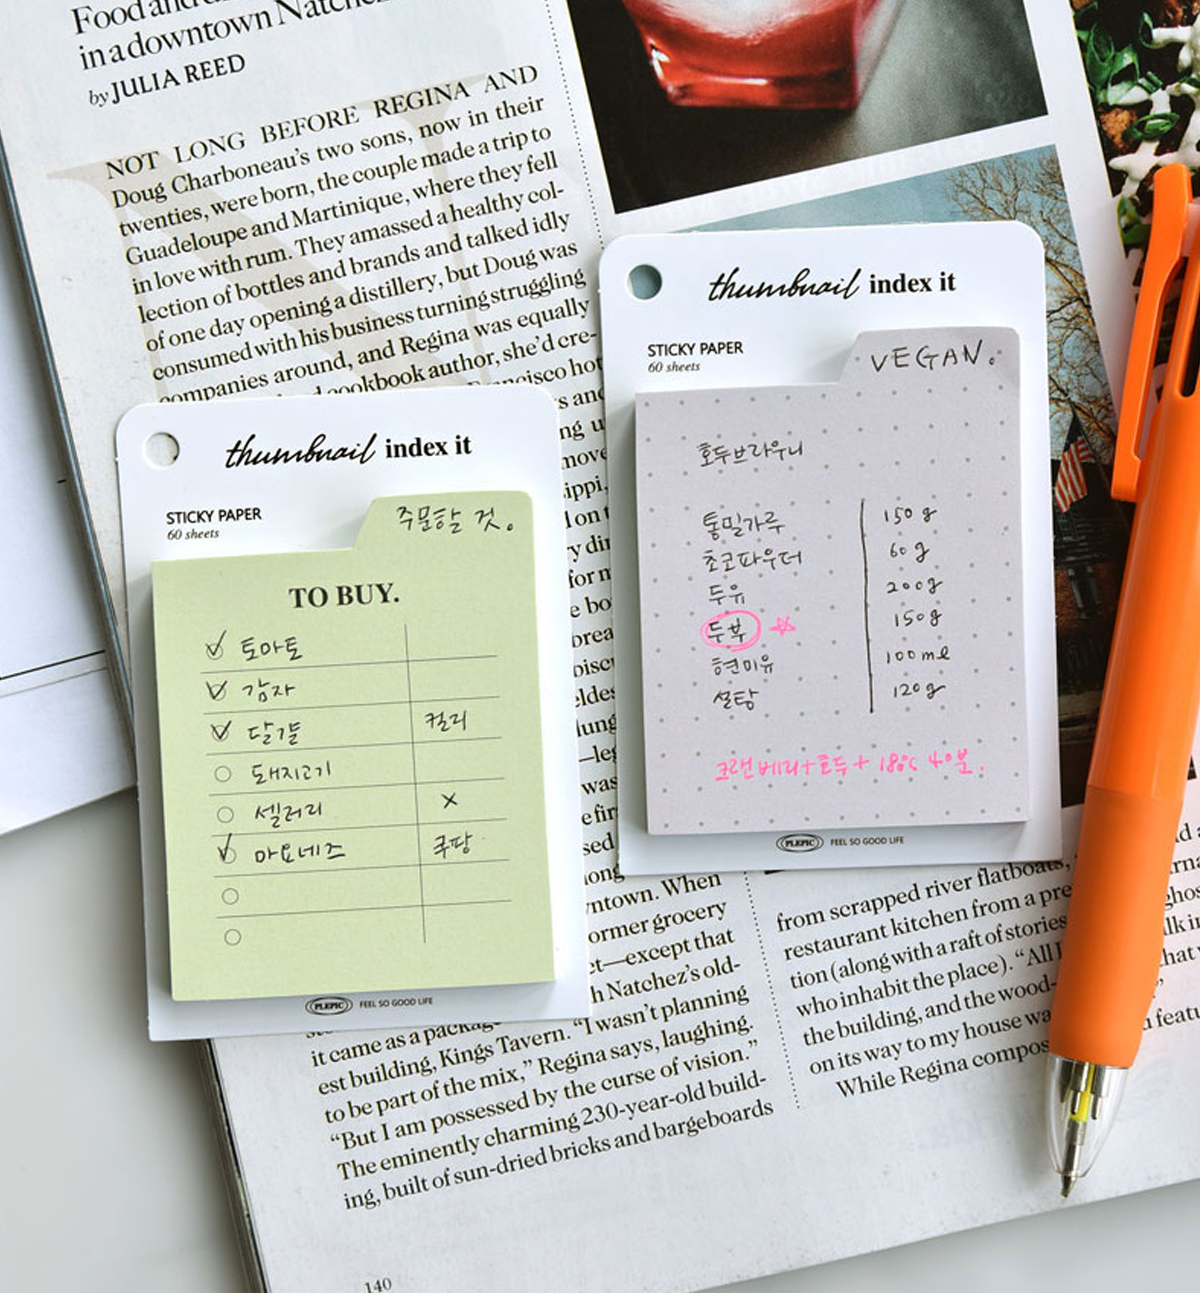 Food and
in a downtown Natchez
by JULIA REED
NOT LONG BEFORE REGINA AND
Doug Charboneau's two sons, now in their
twenties, were born, the couple made a trip to
Guadeloupe and Martinique, where they fell
in love with rum. They amassed a healthy col-
lection of bottles and brands and talked idly
of one day opening a distillery, but Doug was
consumed with his business turning struggling
companies around, and Regina was equally
cookbook author, she'd cre-
hot
s and
ng u
move
ippi,
thumbnail index it
STICKY PAPER
60 sheets
주문할 것.
TO BUY.
토마토
감자
달걀 컬리
돼지고기
셀러리 ×
마요네즈 쿠팡
PLEPIC FEEL SO GOOD LIFE
thumbnail index it
STICKY PAPER
60 sheets
VEGAN.
호두브라우니
통밀가루 150g
초코파우더 60g
두유 200g
두부 150g
현미유 100ml
설탕 120g
크랜베리+호두+180℃ 40분.
PLEPIC FEEL SO GOOD LIFE
ntown. When
ormer grocery
ct—except that
h Natchez's old-
it came as a package
est building, Kings Tavern. "I wasn't planning
to be part of the mix," Regina says, laughing.
"But I am possessed by the curse of vision."
The eminently charming 230-year-old build-
ing, built of sun-dried bricks and bargeboards
from scrapped river flatboats,
restaurant kitchen from a pre
tion (along with a raft of stories
who inhabit the place). "All I
the building, and the wood-
on its way to my house wa
While Regina compos
140